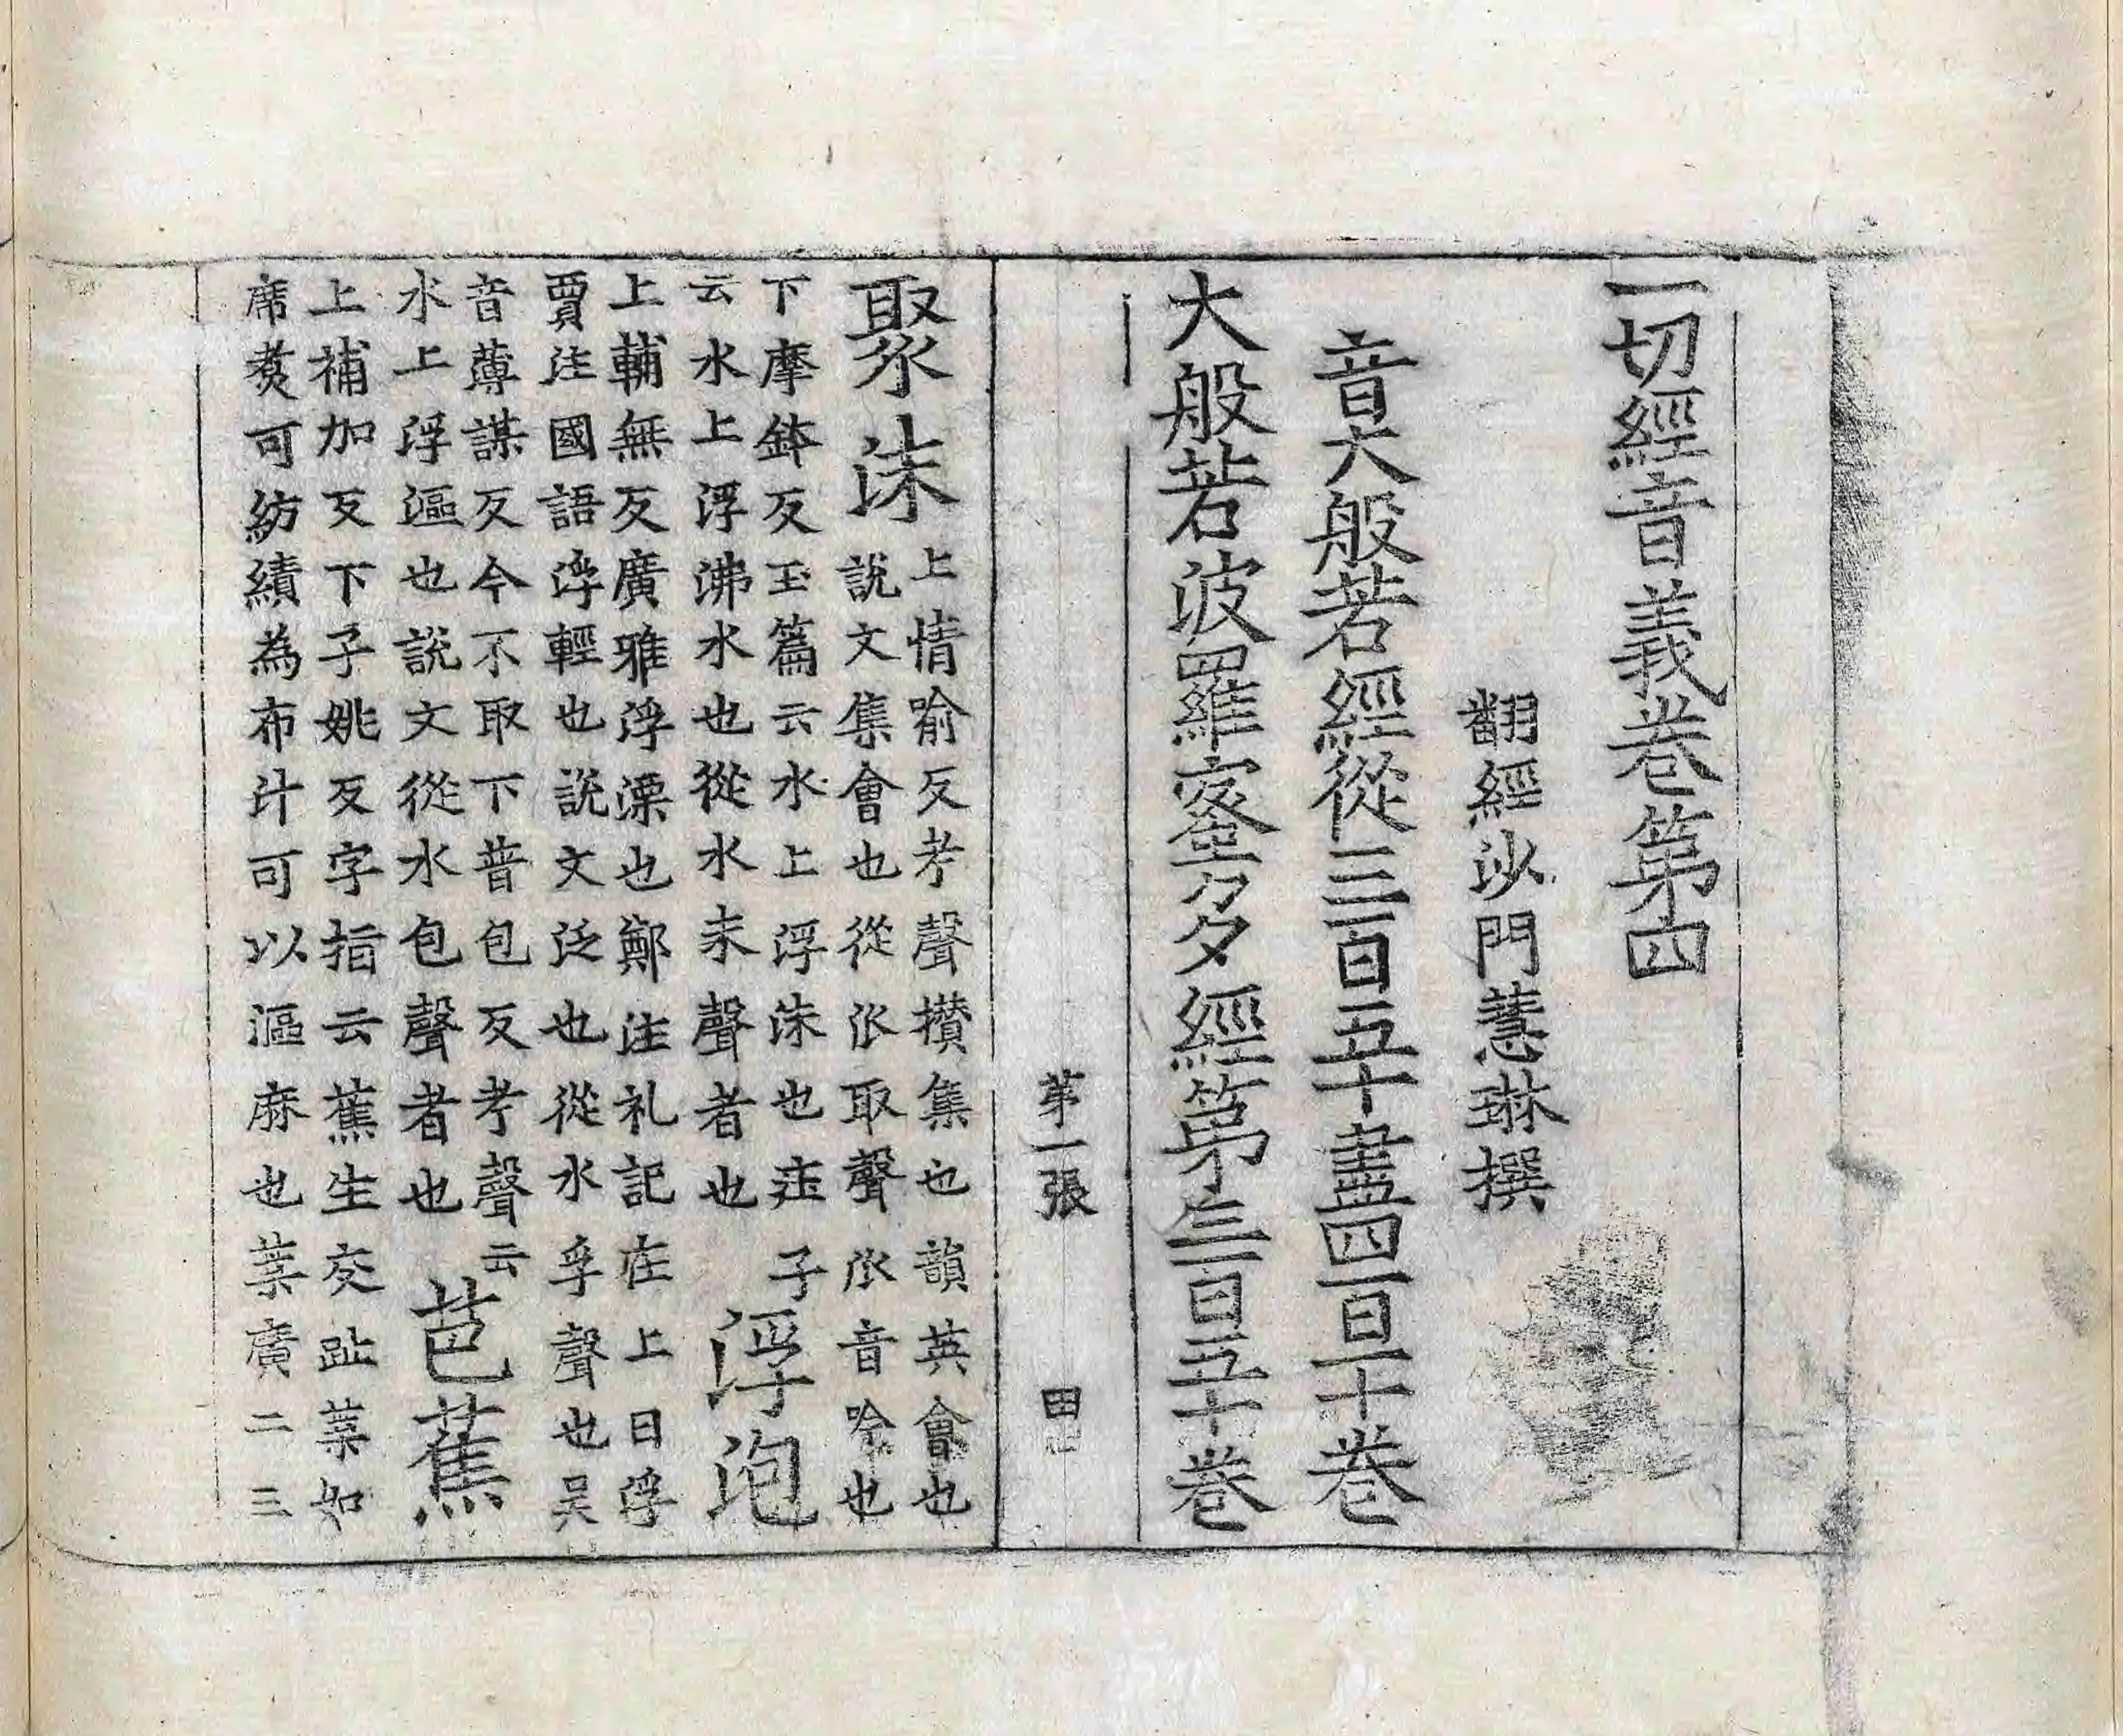 一切經音義卷第四
翻經沙門慧琳撰
音大般若經從三百五十盡四百一十卷
大般若波羅蜜多經第三百五十卷
第一張
田
聚沫
上情喻反考聲攢集也韻英會也
說文集會也從㐺取聲㐺音吟也
下摩鉢反玉篇云水上浮沫也莊子
云水上浮沸水也從水末聲者也
浮泡
上輔無反廣雅浮漂也鄭注礼記在上曰浮
賈注國語浮輕也說文泛也從水孚聲也吴
音薄謀反今不取下普包反考聲云
水上浮漚也說文從水包聲者也
芭蕉
上補加反下子姚反字指云蕉生交趾葉如
席煑可紡績為布汁可以漚麻也葉廣二三